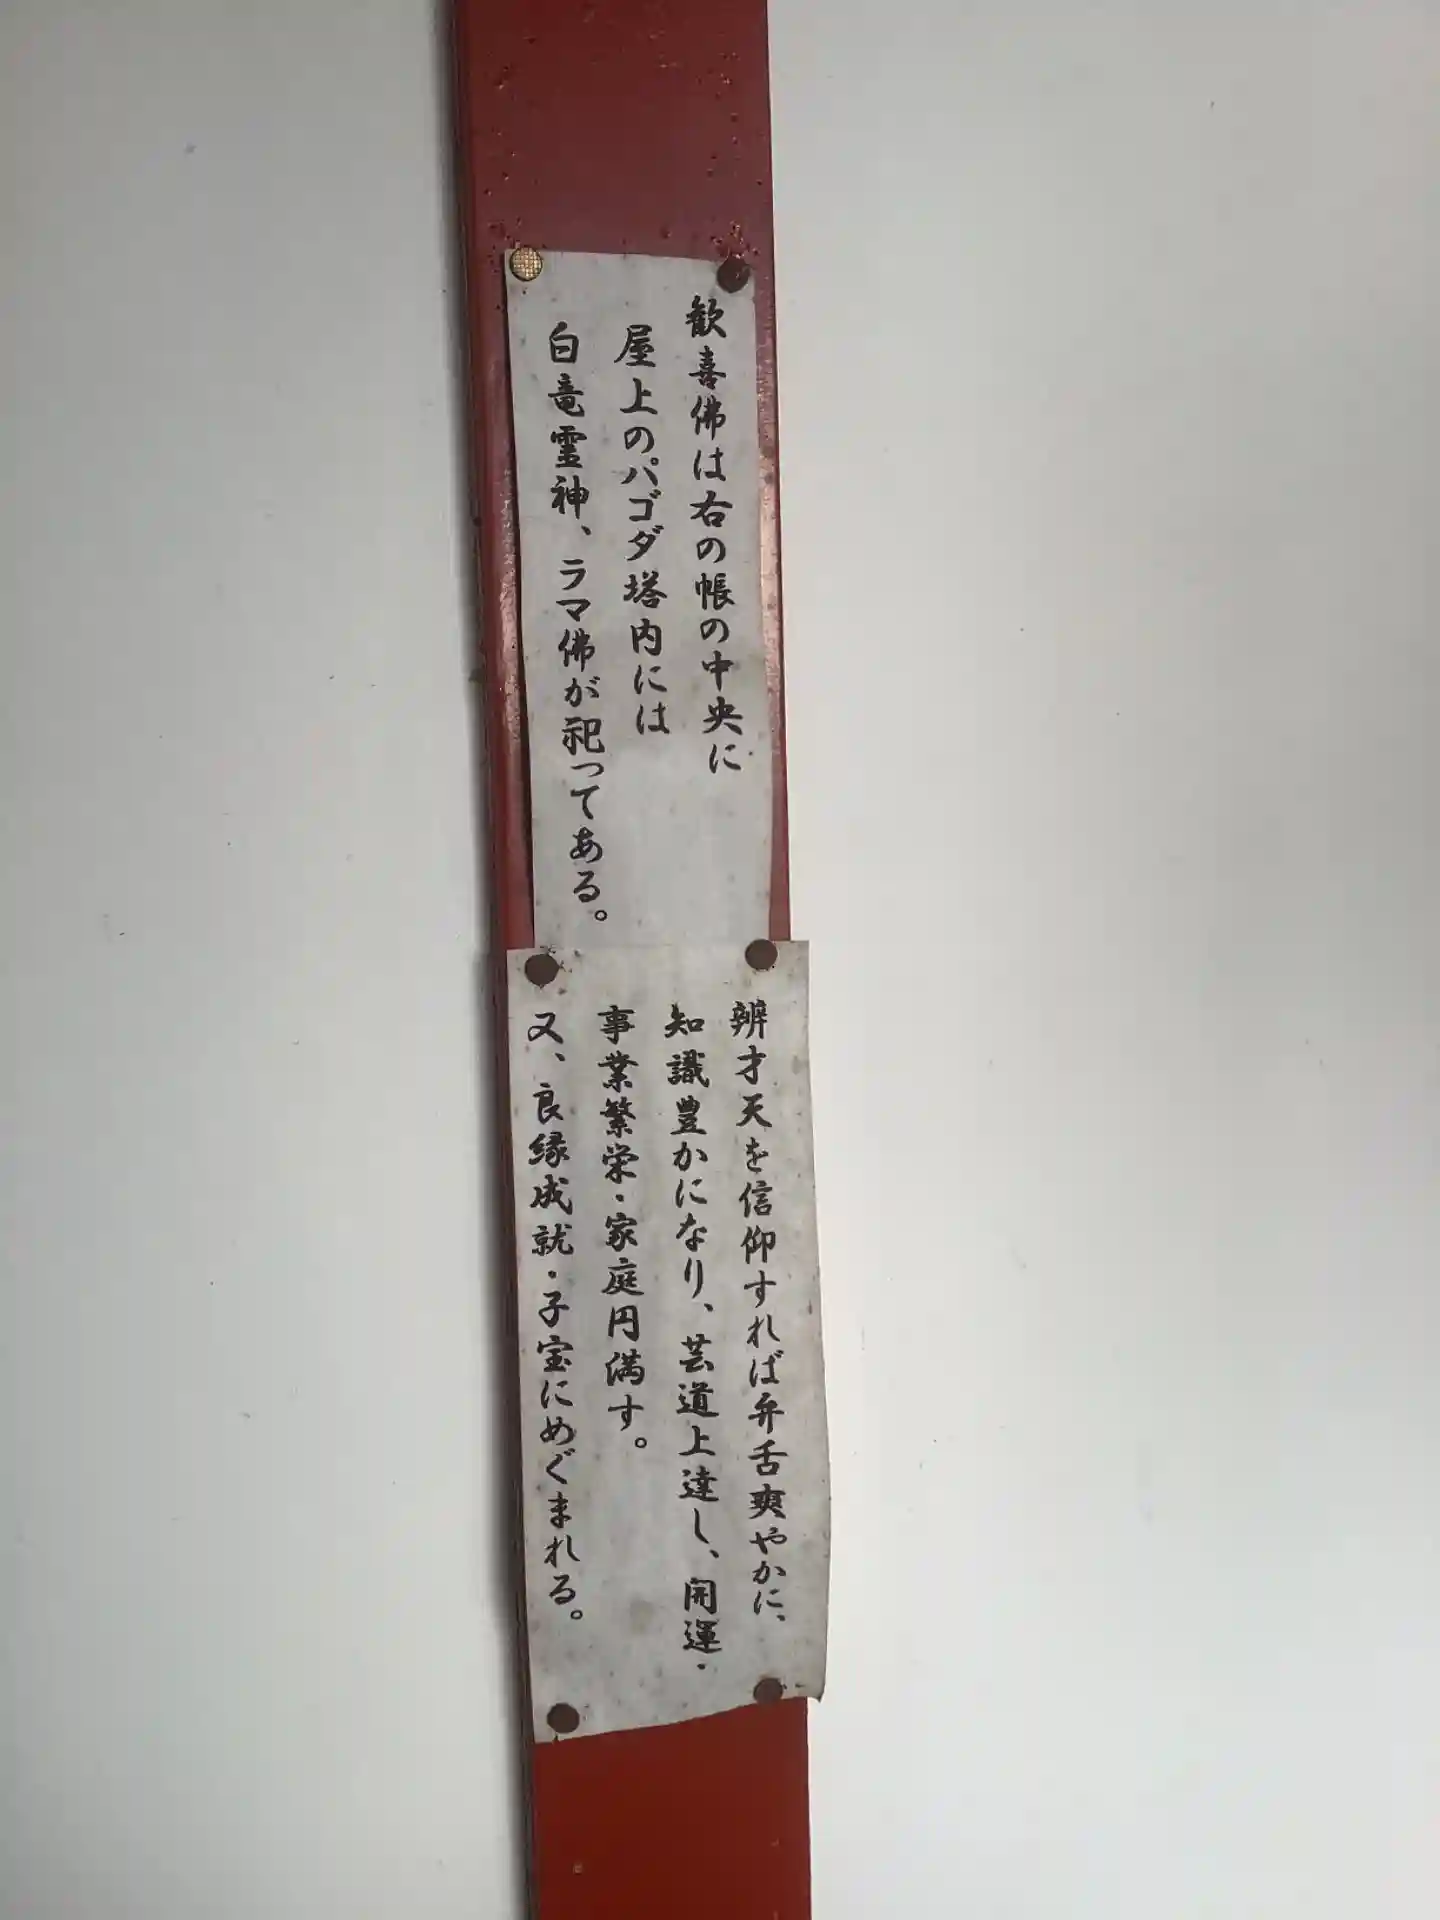 歓喜佛は右の帳の中央に
屋上のパゴダ塔内には
白竜霊神、ラマ佛が祀ってある。
辨才天を信仰すれば弁舌爽やかに、
知識豊かになり、芸道上達し、開運・
事業繁栄・家庭円満す。
又、良縁成就・子宝にめぐまれる。